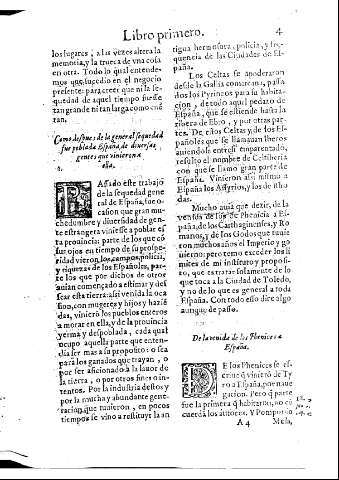 Libro primero. 4
los lugares, a las vezes altera la
memoria, y la trueca de vna cosa
en otra. Todo lo qual entende-
mos que sucedio en el negocio
presente: para creer que ni la se-
quedad de aquel tiempo fue tan
grande ni tan larga como cuẽ
tan.
Como despues de la general sequedad
fue poblada España, de diuersas
gentes que vinieron a
ella.
PAssado este trabajo
de la sequedad gene
ral de España, fue o
casion que gran mu-
chedumbre y diuersidad de gen-
te estrangera viniesse a poblar es
ta prouincia: parte de los que cõ
sus ojos en tiempo de su prospe-
ridad vieron los campos, policia,
y riquezas de los Españoles, par-
te los que por dichos de otros
auian començado a estimar y des
sear esta tierra: assi venida la oca
sion, con mugeres y hijos y hazié
das, vinierõ los pueblos enteros
a morar en ella, y de la prouincia
yerma y despoblada, cada qual
ocupo aquella parte que enten-
dia ser mas a su proposito: o sea
para los ganados que trayan, o
por ser aficionados a la lauor de
la tierra, o por otros fines o in-
tentos. Por la industria destos y
por la mucha y abundante gene-
racion que tuuieron, en pocos
tiempos se vino a restituyr la an
tigua hermosura, policia, y fre-
quencia de las Ciudades de Es-
paña.
Los Celtas se apoderaron
desde la Gallia comarcana, passa
dos los Pyrineos para su habita-
cion, de todo aquel pedaço de
España, que se estiende hasta la
ribera de Ebro, y por otras par-
tes. De estos Celtas y de los Es-
pañoles que se llamauan Iberos
auiendo entre si emparentado,
resulto el nombre de Celtiberia
con que se llamo gran parte de
España. Vinieron assi mismo a
España los Assyrios, y los de Rho
das.
Mucho auia que dezir, de la
venida de los de Phenicia a Es-
paña, de los Carthaginenses, y Ro
manos, y de los Godos que tuuie
ron muchos años el Imperio y go
uierno: pero temo exceder los li
mites de mi instituto y proposi-
to, que es tratar solamente de lo
que toca a la Ciudad de Toledo,
y no de lo que es general a toda
España. Con todo esso dire algo
aunque de passo.
De la venida de los Phenices a
España.
DE los Phenices se es-
criue q̃ vinierõ de Ty
ro a España, por naue
gacion. Pero q̃ parte
fue la primera q̃ habitaron, no cõ
cuerda los autores. Y Pomponio
A 4 Mela,